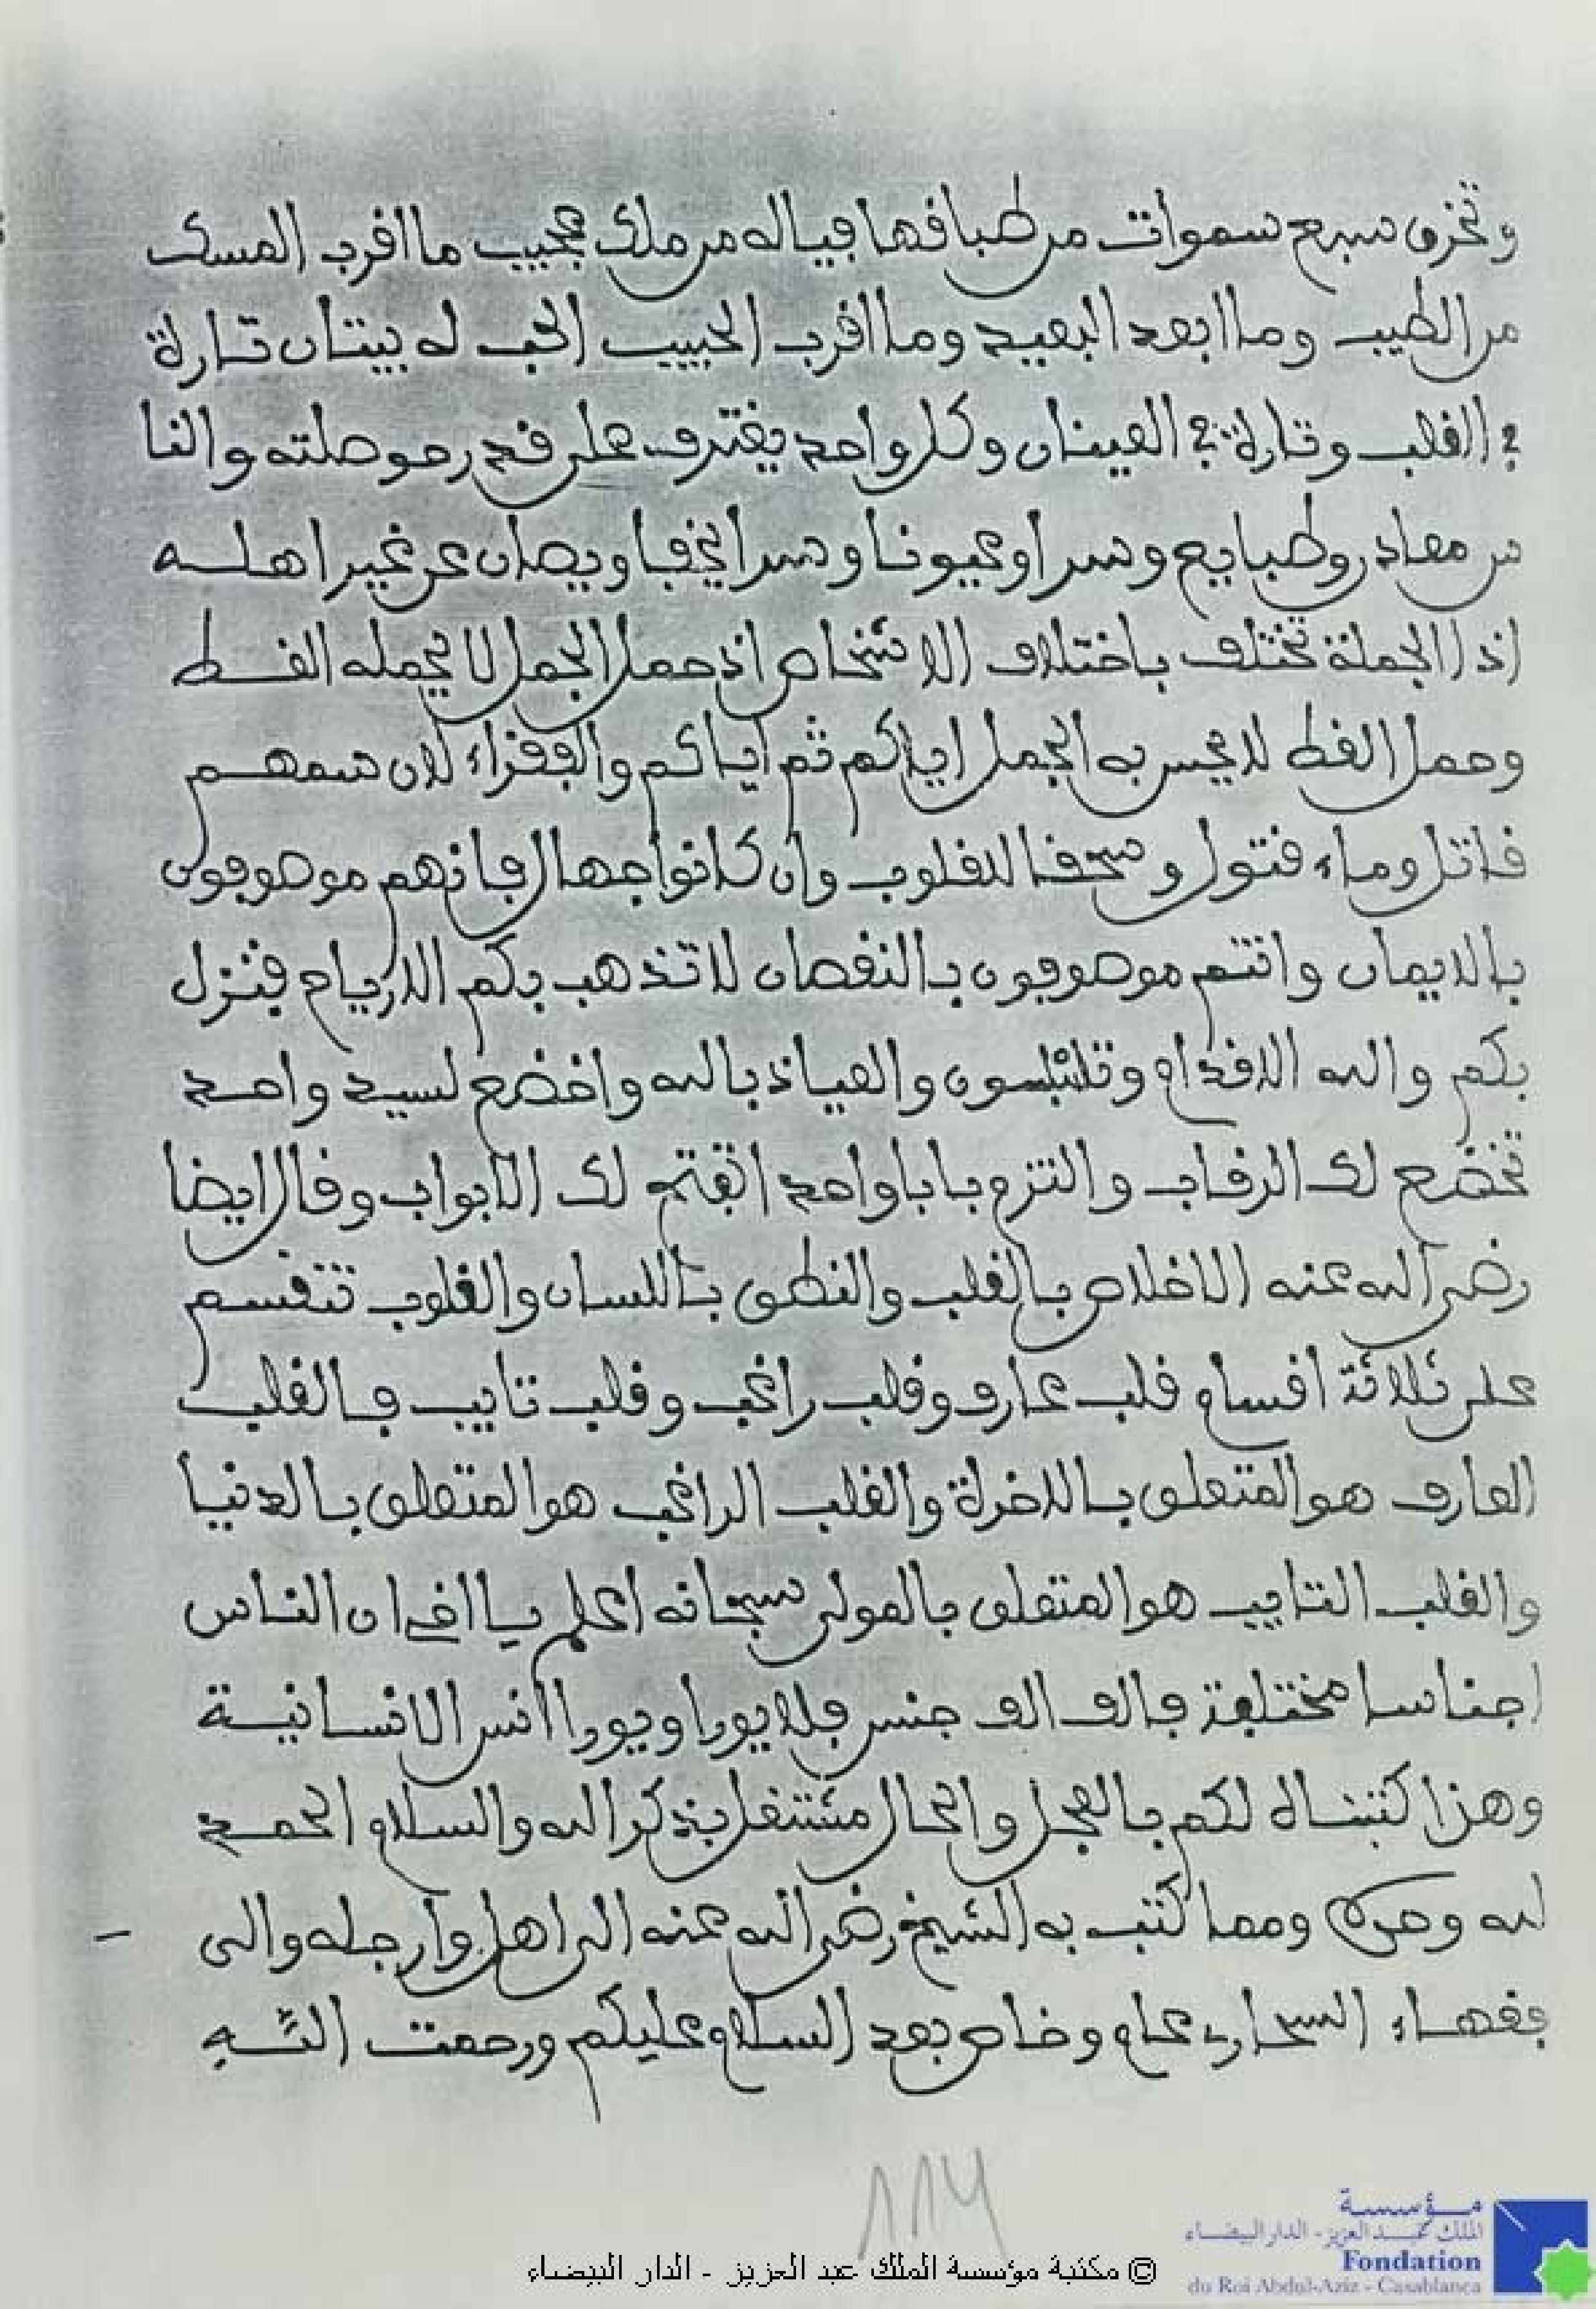 وتخرق سبع سموات من طباقها فياله من ملك عجيب ما اقرب المسك
من الطيب وما ابعد البعيد وما اقرب الحبيب الحب له بيتان تارة
في القلب وتارة في العينان وكل واحد يغترف على قدر حوصلته والنا
من معادن وطبايع وسرا وعيونا وسرا يخفا ويصان عن غير اهله
اذ الجملة تختلف باختلاف الاشخاص اذ حمل الجمل لا يحمله القط
وحمل القط لا يحس به الجمل اياكم ثم اياكم والفقراء لان سمهم
قاتل وماء قتول وسحقا للقلوب وان كانوا جهال فانهم موصوفون
بالايمان وانتم موصوفون بالنقصان لا تذهب بكم الارياح فتزل
بكم والله الاقدام وتلبسون والعياذ بالله واخضع لسيد واحد
تخضع لك الرقاب والتزم بابا واحد اتفتح لك الابواب وقال ايضا
رضي الله عنه الاخلاص بالقلب والنطق باللسان والقلوب تنقسم
على ثلاثة اقسام قلب عارف وقلب راغب وقلب تايب فالقلب
العارف هو المتعلق بالاخرة والقلب الراغب هو المتعلق بالدنيا
والقلب التايب هو المتعلق بالمولى سبحانه اعلم يا اخي ان الناس
اجناسا مختلفة فالف الف جنس فلا يورا ويورا انس الانسانية
وهذا كتبناه لكم بالعجل والحال مشتغل بذكر الله والسلام الحمد
لله وحده ومما كتب به الشيخ رضي الله عنه الى اهل وارجله والى
فقهاء السحارى عام وخاص بعد السلام عليكم ورحمت الله
١١٧
© مكتبة مؤسسة الملك عبد العزيز - الدار البيضاء
مؤسسة
الملك عبد العزيز - الدار البيضاء
Fondation
du Roi Abdul-Aziz - Casablanca